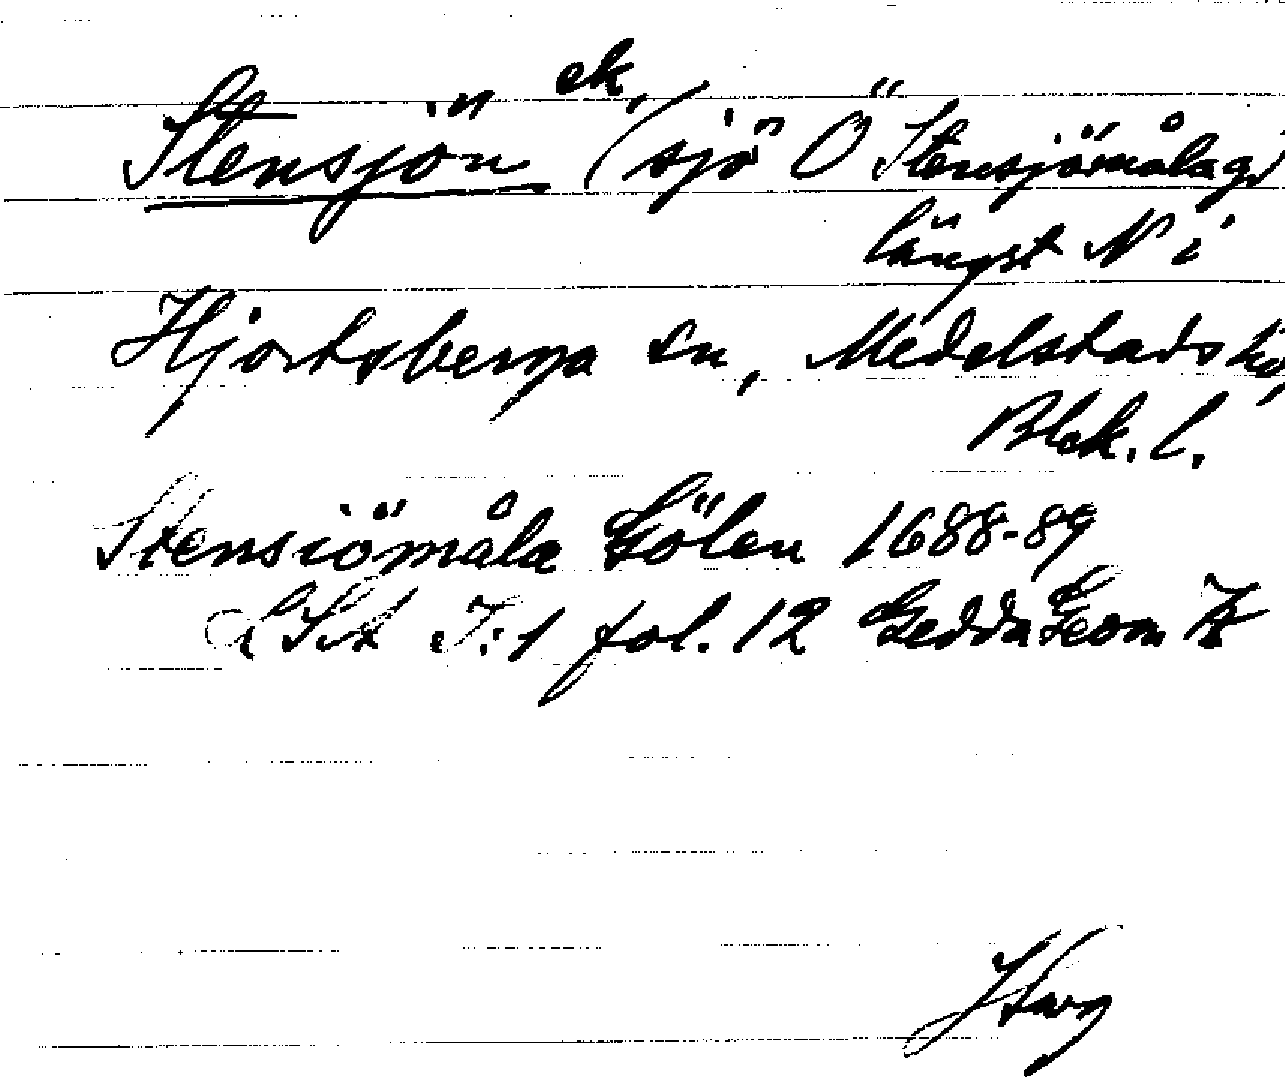 Stensjön ek. (sjö Ö Stensjömåla gd
längst N i
Hjortsberga sn, Medelstads hd,
Blek. l.
Stensiömåla Gölen 1688-89
LSA I:1 fol. 12 Gedda Geom